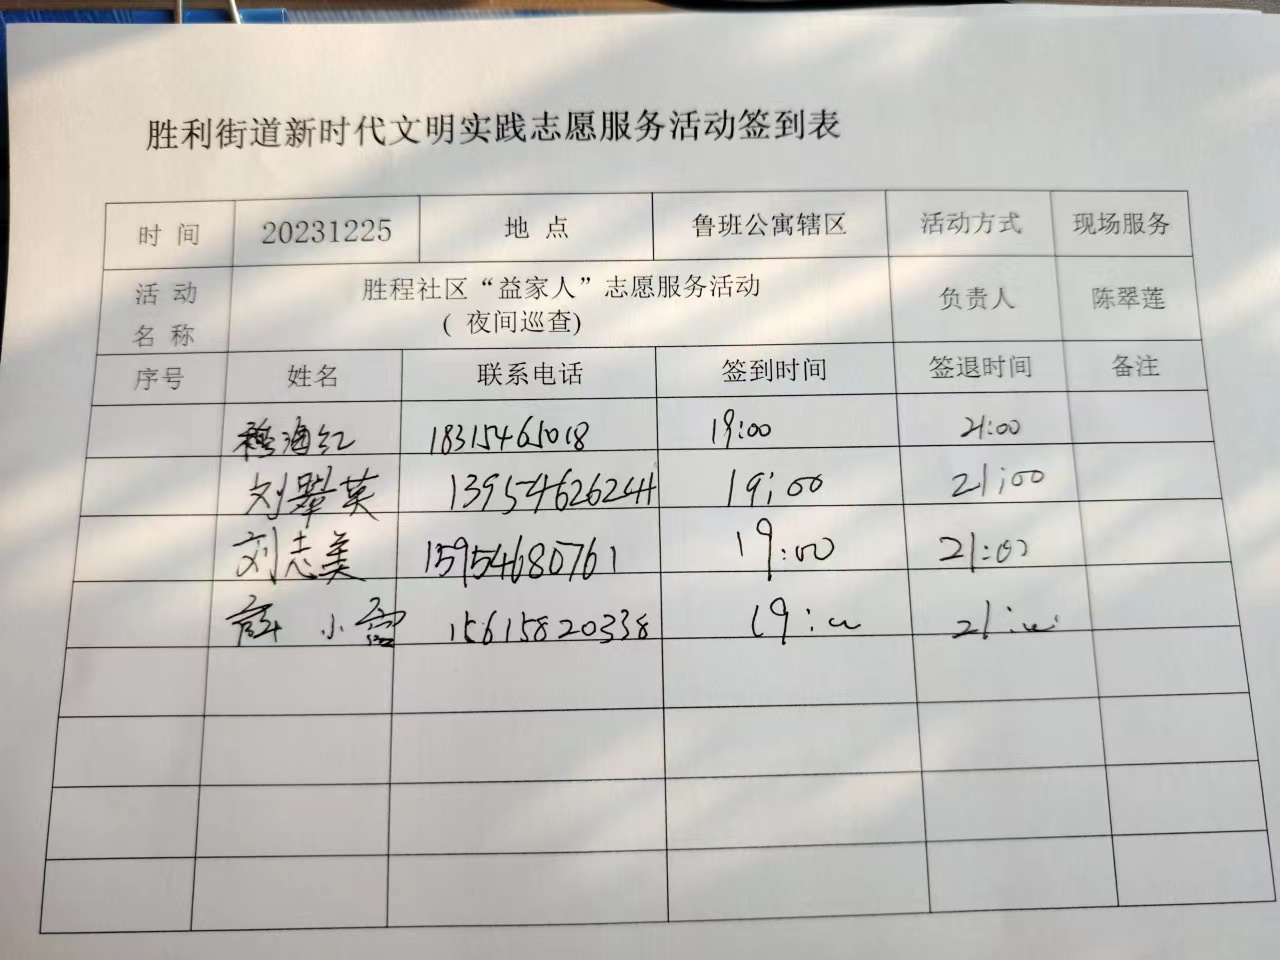 胜利街道新时代文明实践志愿服务活动签到表
时 间 20231225 地 点 鲁班公寓辖区 活动方式 现场服务
活 动 名 称 胜程社区“益家人”志愿服务活动 负责人 陈翠莲
( 夜间巡查)
序号 姓名 联系电话 签到时间 签退时间 备注
穆海红 18315465018 19:00 21:00
刘翠英 13954626244 19:00 21:00
刘志美 15954680761 19:00 21:00
薛小雪 15615820338 19:00 21:00